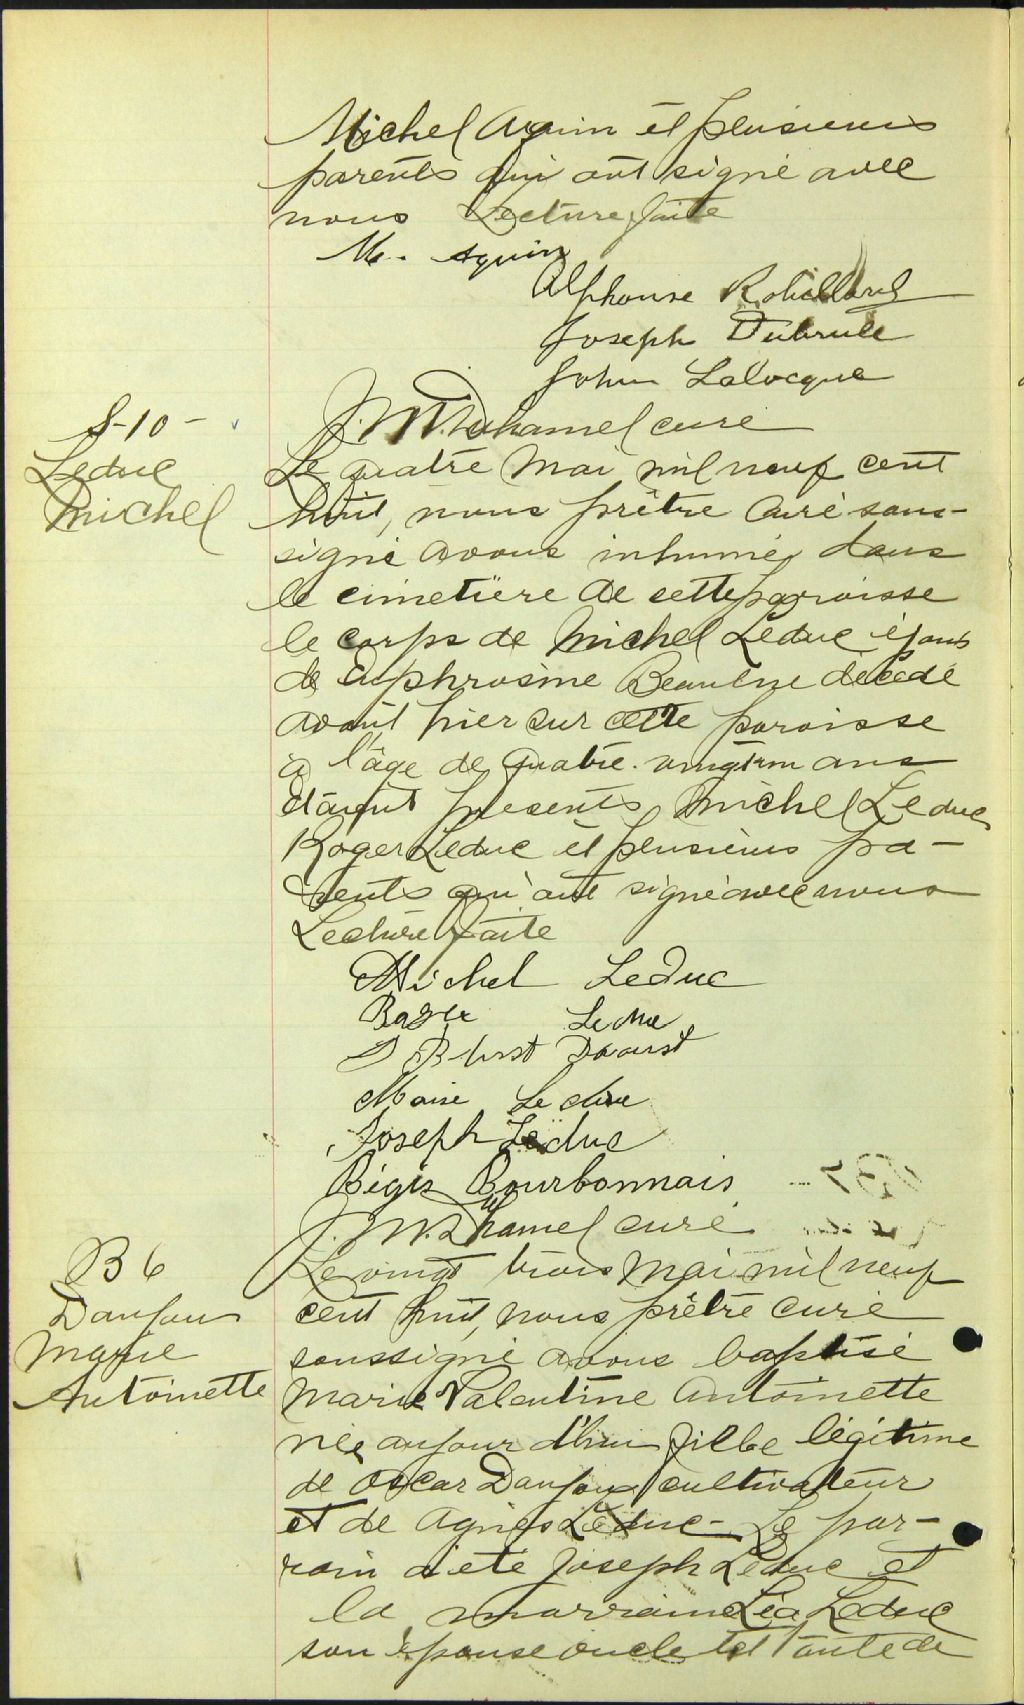 Michel Aquin et plusieurs
parents qui ont signé avec
nous Lecture faite
M. Aquin
Alphonse Robillard
Joseph Dubrule
John LaRocque
J. M. Duhamel curé
S-10-
Leduc
Michel
Le quatre Mai mil neuf cent
huit, nous prêtre curé sous-
signé avons inhumé dans
le cimetière de cette paroisse
le corps de Michel Leduc époux
de Euphrosine Beaulne décédé
avant hier sur cette paroisse
à l'âge de quatre-vingt un ans
Etaient présents Michel Leduc
Roger Leduc et plusieurs pa-
rents qui ont signé avec nous
Lecture faite
Michel Leduc
Leduc
Daoust
Leduc
Joseph Leduc
Régis Bourbonnais
J. M. Duhamel curé
B 6
Danjou
Marie
Antoinette
Le vingt trois Mai mil neuf
cent huit, nous prêtre curé
soussigné avons baptisé
Marie Valentine Antoinette
née aujour d'hui fille légitime
de Oscar Danjou cultivateur
et de Agnès Leduc - Le par-
rain a été Joseph Leduc et
la marraine Léa Leduc
son épouse oncle et tante de